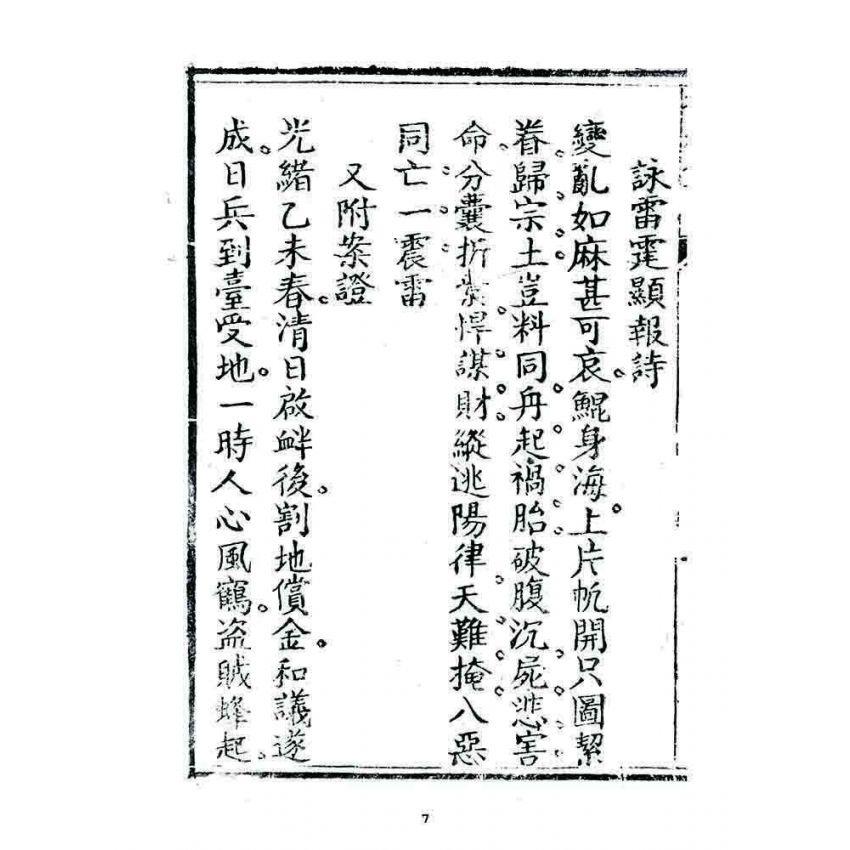 詠雷霆顯報詩
變亂如麻甚可哀鯤身海上片帆開只圖挈
眷歸宗土豈料同舟起禍胎破腹沉屍悲害
命分囊折橐悍謀財縱逃陽律天難掩八惡
同亡一震雷
又附案證
光緒乙未春清日啟衅後割地償金和議遂
成日兵到臺受地一時人心風鶴盜賊蜂起
7